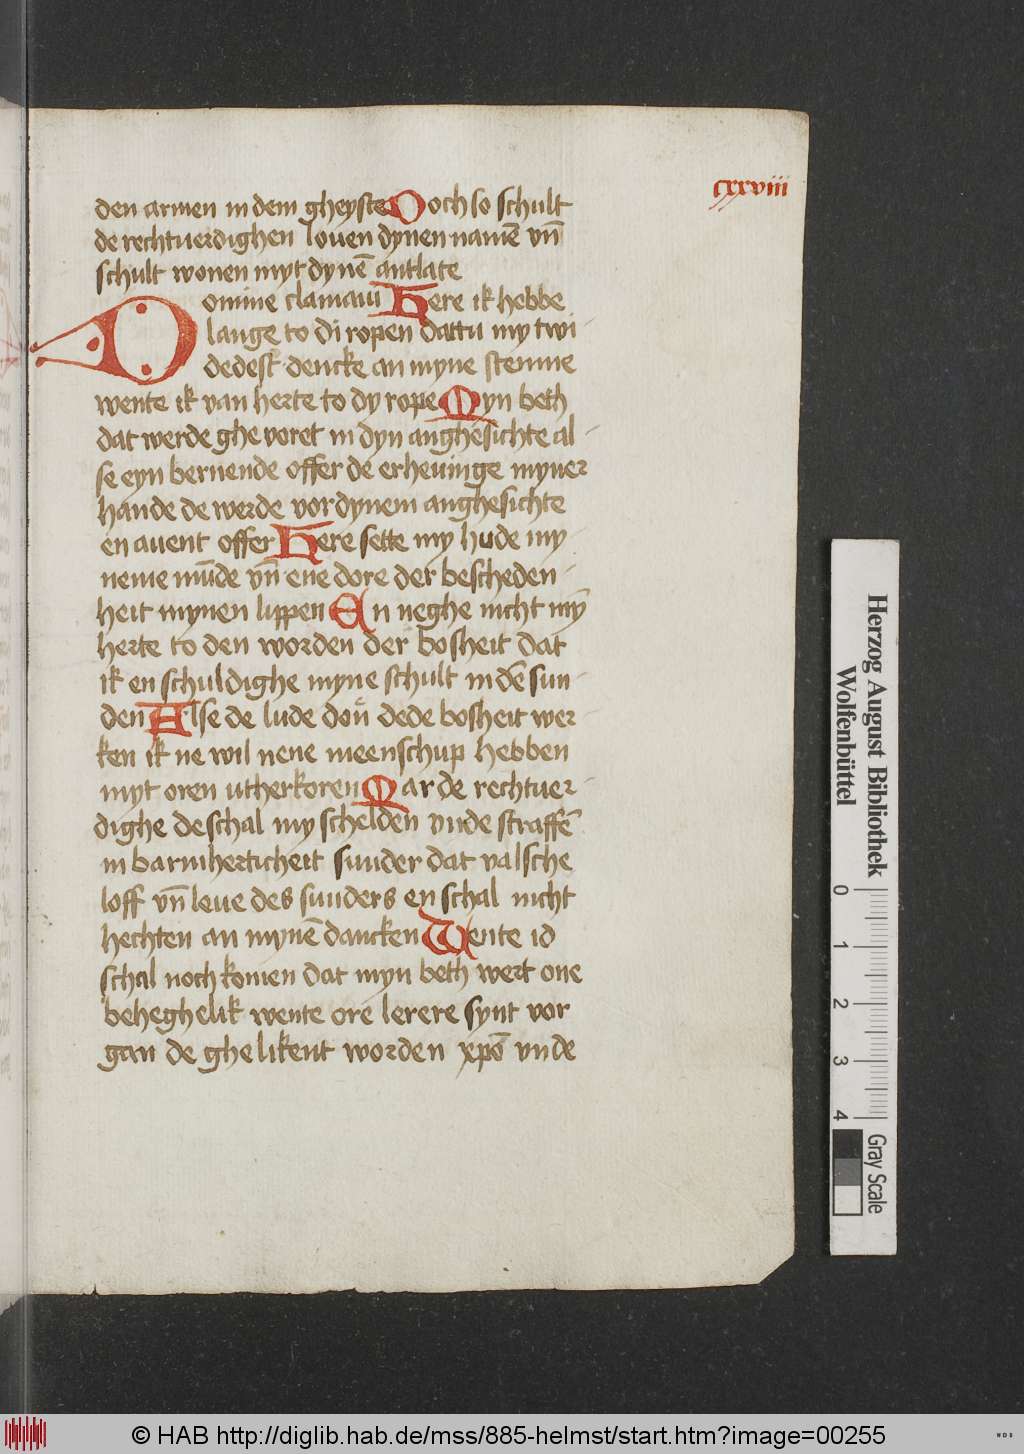 cxxviii
den armen in dem gheyste Doch so schult
de rechtuerdighen louen dynen namē vn̄
schult wonen myt dynē antlate
Domine clamaui Here ik hebbe
lange to di ropen dattu my twi
dedest dencke an myne stemme
wente ik van herte to dy rope Myn beth
dat werde ghe voret in dyn anghesichte al-
se eyn bernende offer de erheuinge myner
hande de werde vor dynem anghesichte
en auent offer Here sette my hude my-
neme mūde vn̄ ene dore der bescheden-
heit mynen lippen En neghe nicht myn̄
herte to den worden der bosheit dat
ik en schuldighe myne schult in dē sun-
den Alse de lude don̄ dede bosheit wer-
ken ik ne wil nene meenschup hebben
myt oren utherkoren Mar de rechtuer-
dighe de schal my schelden vnde straffē
in barmherticheit sunder dat valsche
loff vn̄ leue des sunders en schal nicht
hechten an mynē dancken Wente id
schal noch komen dat myn beth wert one
beheghelik wente ore lerere synt vor
gan de ghelikent worden xpō vnde
Herzog August Bibliothek
Wolfenbüttel
0 1 2 3 4
Gray Scale
© HAB http://diglib.hab.de/mss/885-helmst/start.htm?image=00255